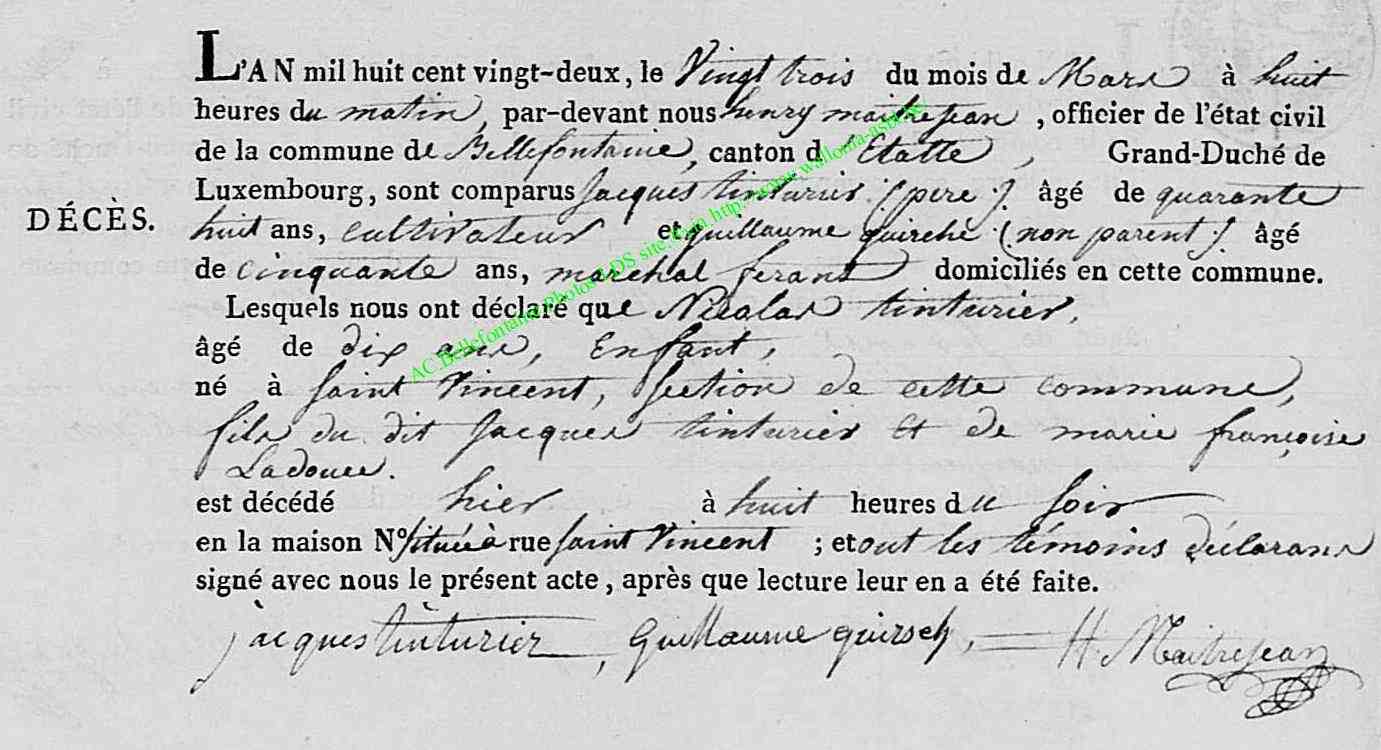 L'AN mil huit cent vingt-deux, le Vingt trois du mois de Mars à huit
heures du matin, par-devant nous henry maitrejean, officier de l'état civil
de la commune de Bellefontaine, canton d'Etalle, Grand-Duché de
Luxembourg, sont comparus Jacques tinturier (pere) âgé de quarante
DÉCÈS.
huit ans, cultivateur et guillaume quirche (non parent) âgé
de cinquante ans, marchal ferant domiciliés en cette commune.
Lesquels nous ont déclaré que Nicolas tinturier,
âgé de dix ans, Enfant,
né à Saint Vincent, section de cette commune,
fils du dit Jacques tinturier et de marie françoise
Ladouce.
est décédé hier à huit heures du soir
en la maison N° située à rue saint Vincent ; et ont les témoins déclarans
signé avec nous le présent acte, après que lecture leur en a été faite.
jacques tinturier, Guillaume quirsch, H. Maitrejean
AC Bellefontaine Photos LDS site Web http://www.wallonia-asbl.be